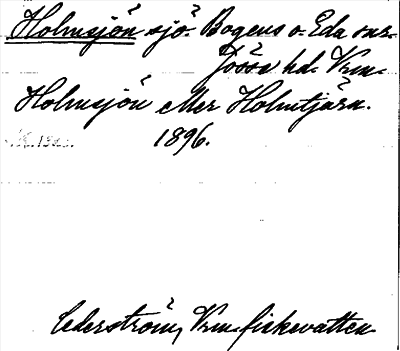 Holmsjön sjö. Bogens o. Eda snr.
Jösse hd. Vrm.
Holmsjön eller Holmtjärn.
1896.
Cederström, Vrm. fiskevatten